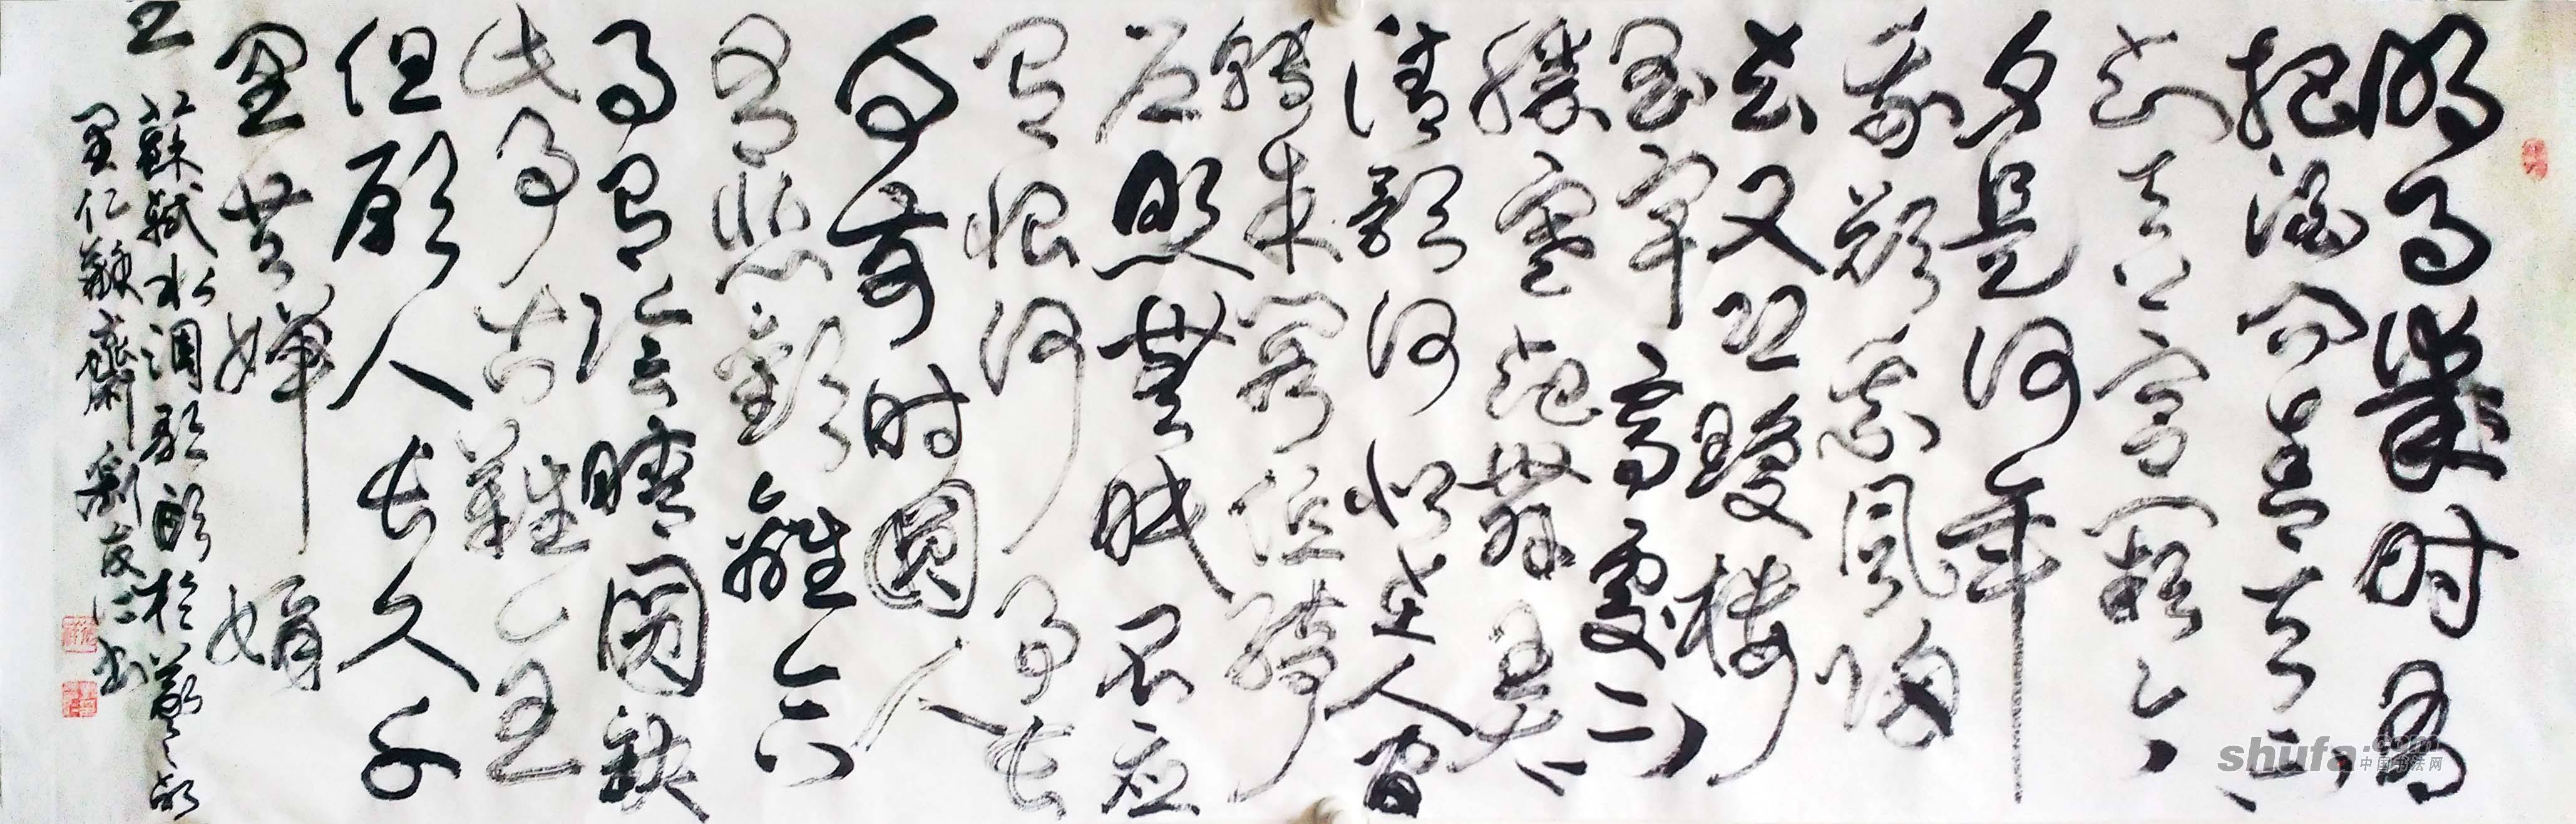 明月幾时有
把酒问青天不
知天上宫闕今
夕是何年
我欲乘風归
去又恐瓊楼
玉宇高處不
勝寒起舞弄
清影何似在人间
转朱阁低绮
户照無眠不应
有恨何事长
向别时圆人
有悲歡離合
月有陰晴圆缺
此事古難全
但願人长久千
里共嬋娟
蘇軾水调歌頭於
shufa.com
中国书法网